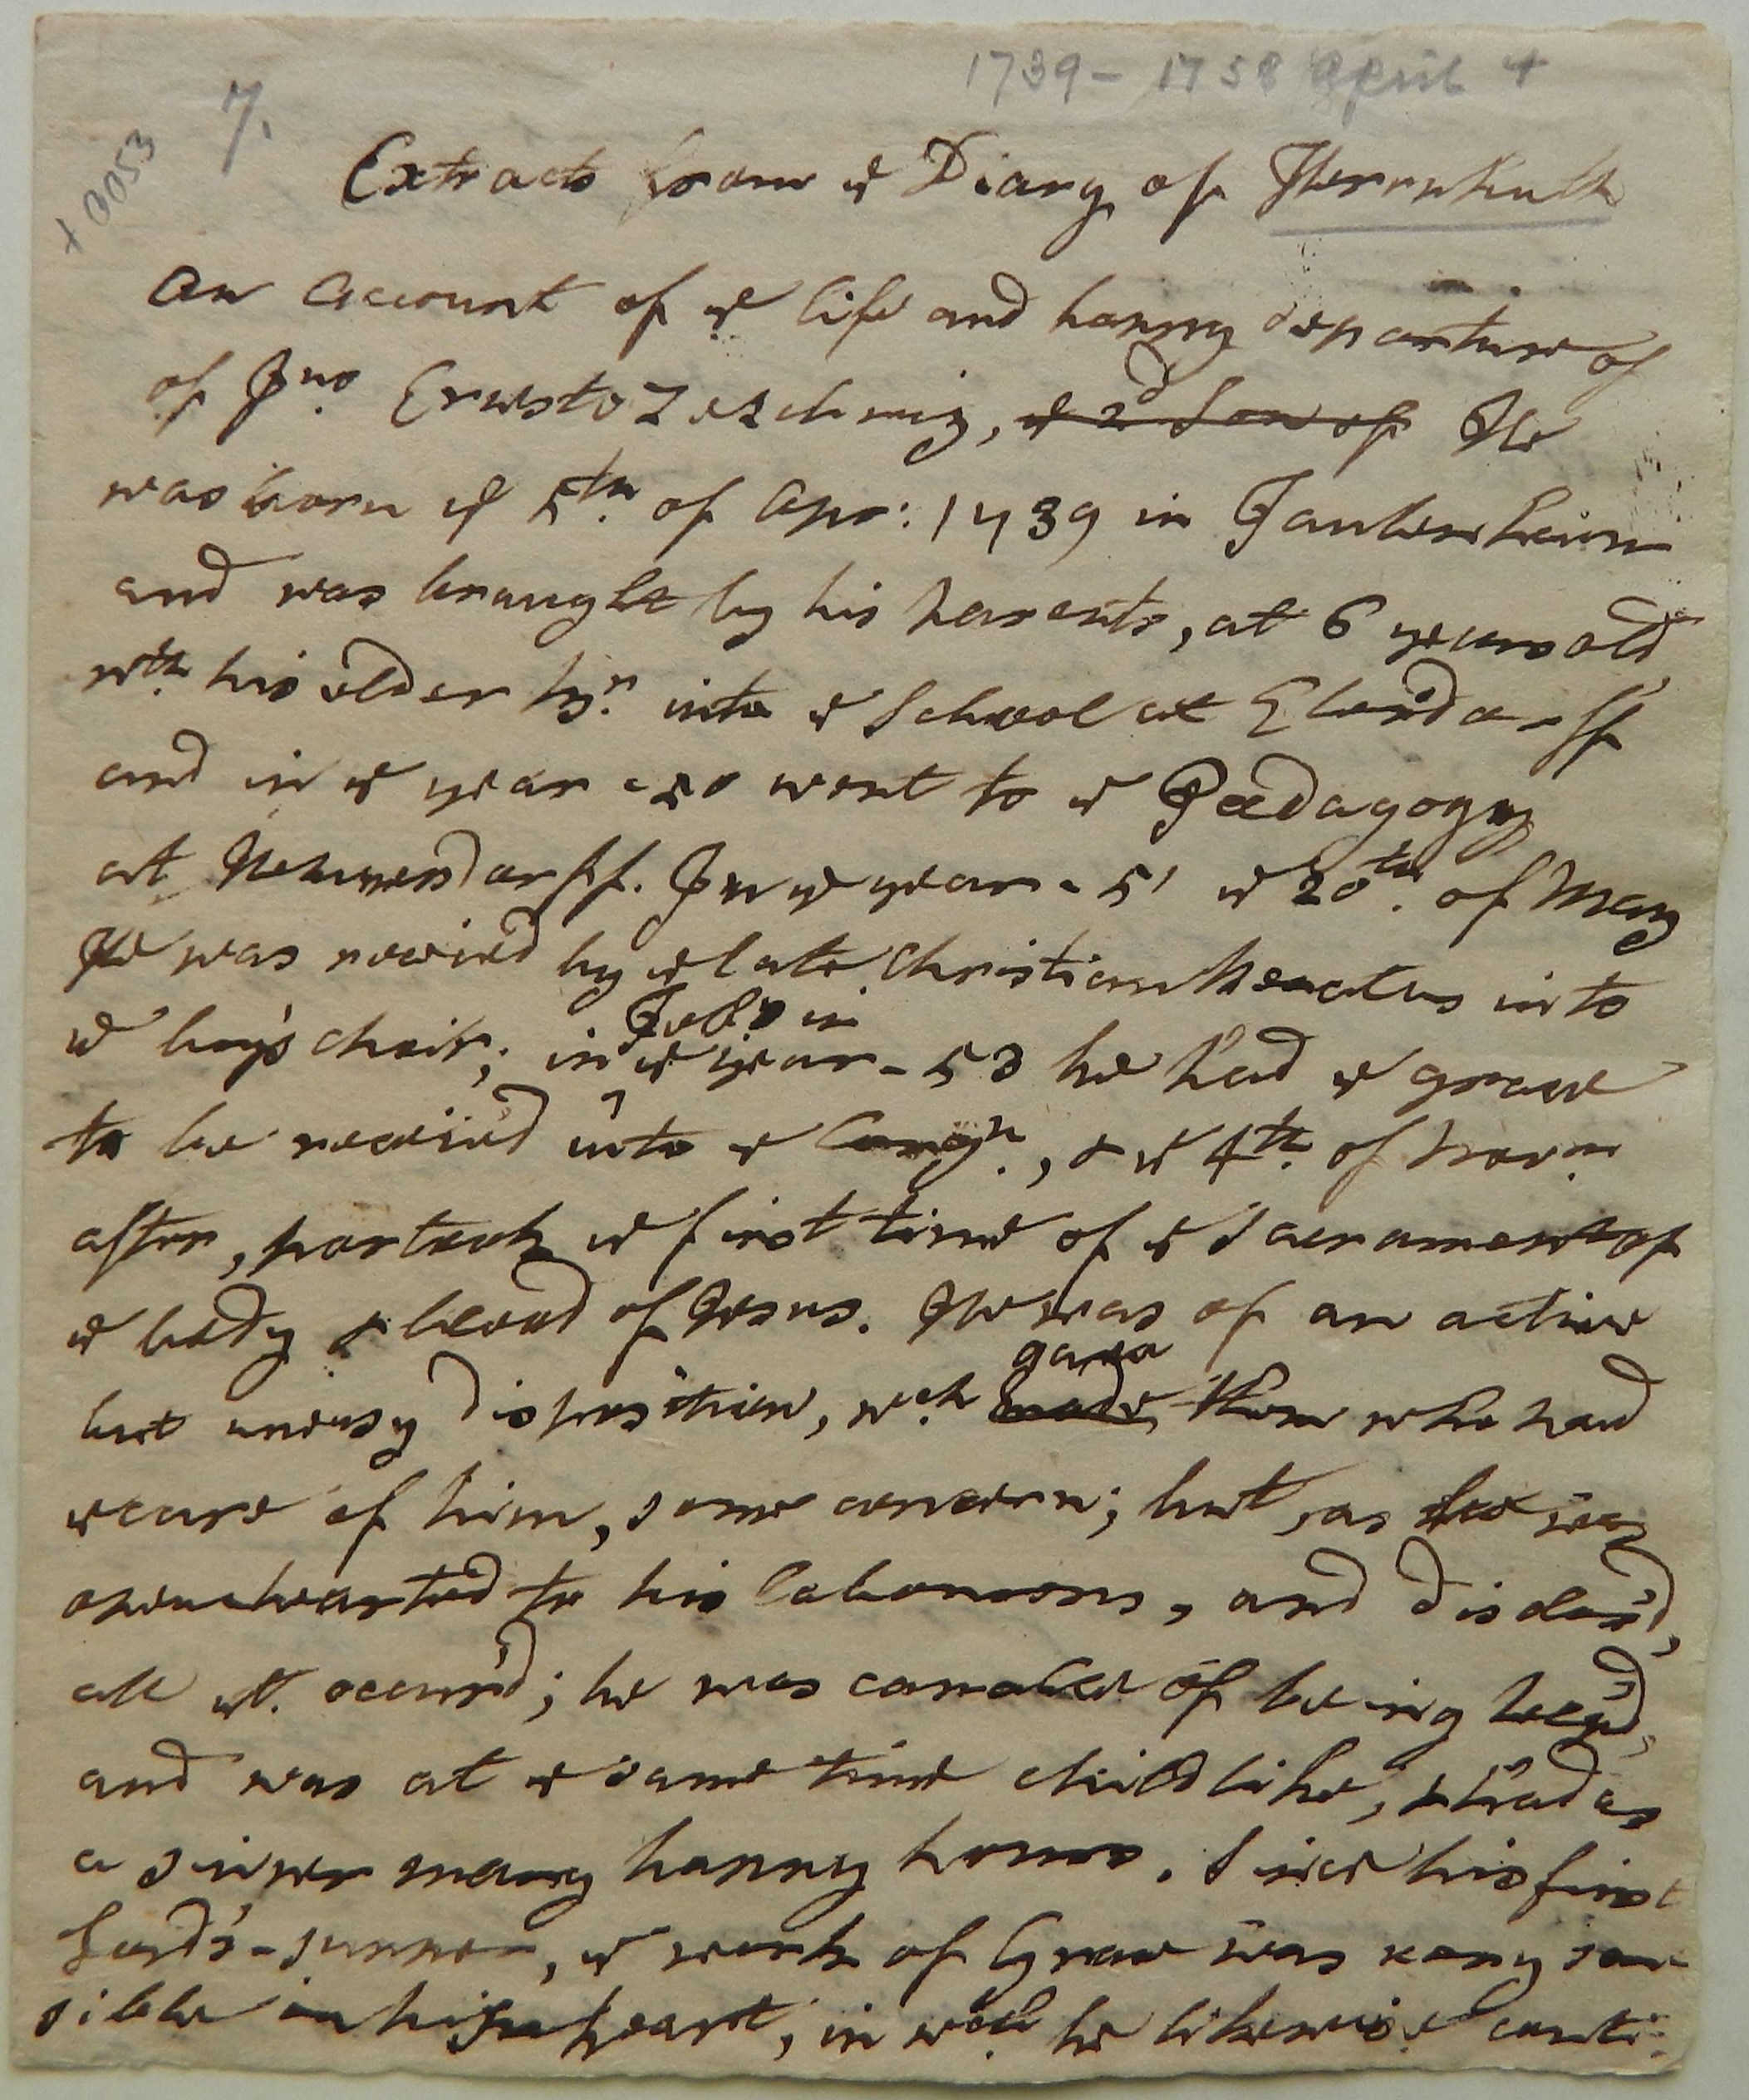 1739 - 1758 April 4
7.
+ 0053
Extracts from ye Diary of Herrnhuth
An account of ye life and happy departure of
of Jno. Ernesto Zeschwiz, ye 2d Son of He
was born ye 5th. of Apr: 1739 in Taubenheim
and was brought by his parents, at 6 years old
wth. his elder Br. into ye School at Ebersdorff
and in ye year -50 went to ye Pædagogy
at Hennersdorff. In ye year - 51 ye 20th. of May
He was receiv'd by ye late Christian Renatus into
ye boy's choir; in ye year - 53 he had ye grace
July in
to be receiv'd into ye Congn., & ye 4th. of Novm.
after, partook ye first time of ye Sacrament of
ye body & blood of Jesus. He was of an active
gave
but uneasy disposition, wch made them who had
ye care of him, some concern; but, as he was
openhearted to his labourers, and disclos'd,
all yt. occur'd; he was capable of being help'd,
and was at ye same time childlike, & had as
a sinner many happy hours. Since his first
Lord's-supper, ye work of Grace was very sen-
sible in his heart, in wch. he likewise conti: